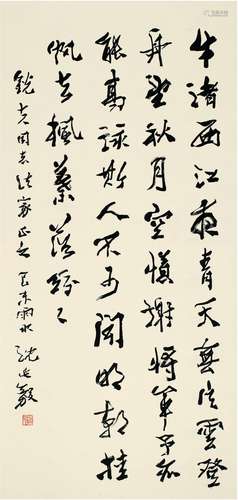 牛渚西江夜青天無片雲登
舟望秋月空憶謝將軍予亦
能高詠斯人不可聞明朝挂
帆去楓葉落紛〻
同志法家正之 己未雨水 沈延毅